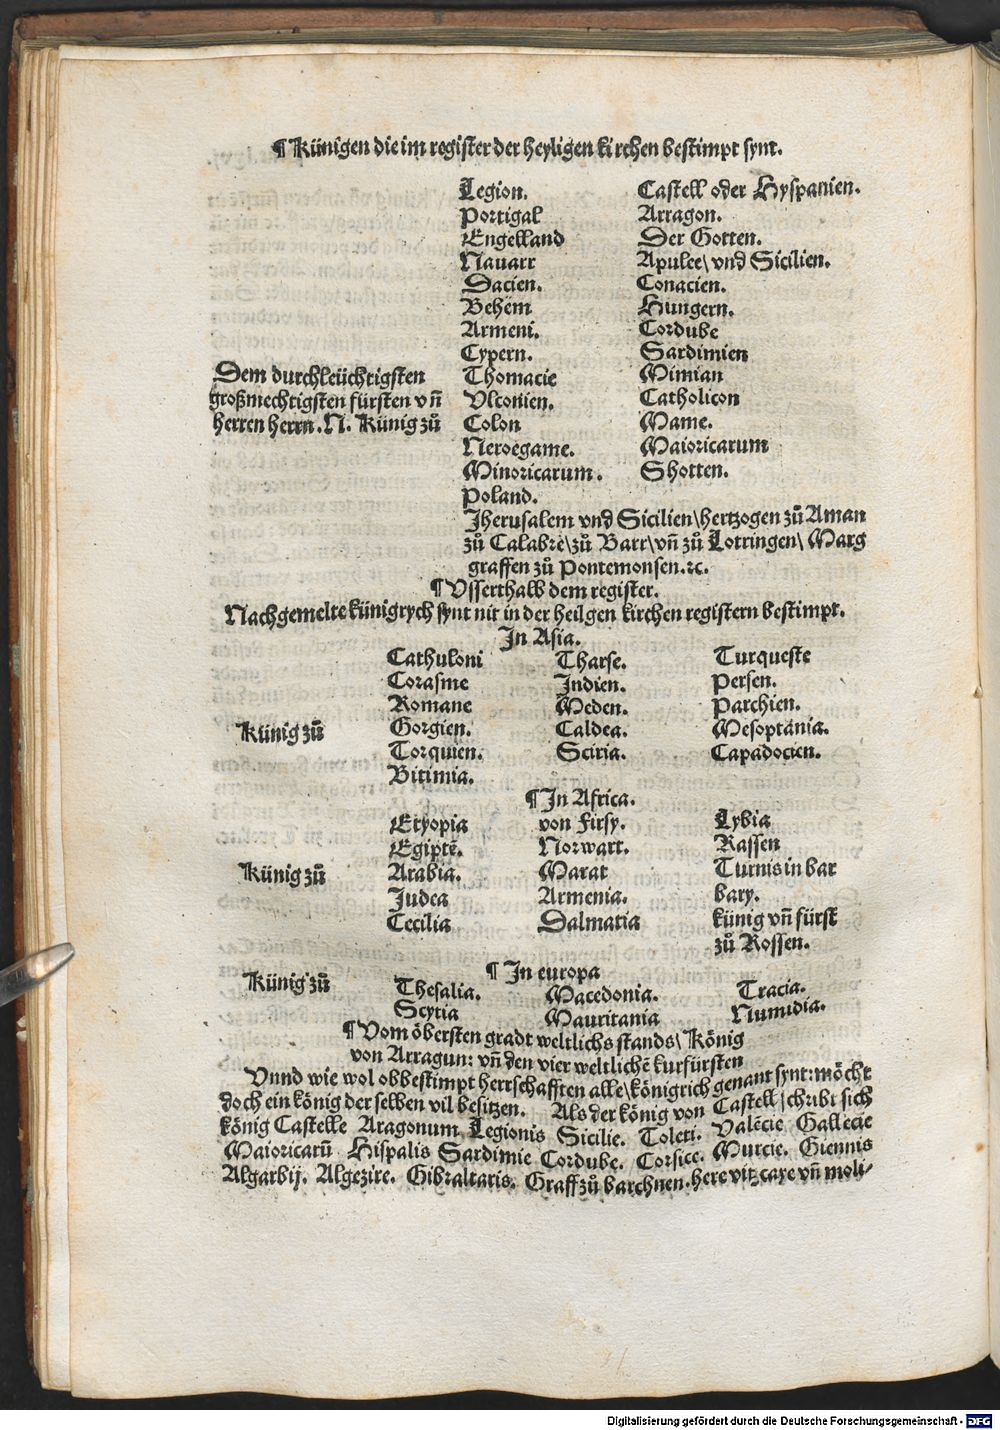 ¶ Künigen die im register der heyligen kirchen bestimpt synt.
Legion. Castell oder Hyspanien.
Portigal Arragon.
Engelland Der Gotten.
Nauarr Apulee\ vnd Sicilien.
Dacien. Conacien.
Behem Hungern.
Armeni. Cordube
Cypern. Sardimien
Dem durchleüchtigsten Thomacie Mimian
großmechtigsten fürsten vñ Vlconien. Catholicon
herren herrn. N. Künig zů Colon Mame.
Neroegame. Maioricarum
Minoricarum. Shotten.
Poland.
Jherusalem vnd Sicilien\ hertzogen zů Aman
zů Calabre\ zů Barr\ vñ zů Lotringen\ Marg
graffen zů Pontemonsen.ꝛc.
¶ Vsserthalb dem register.
Nachgemelte künigrych synt nit in der heilgen kirchen registern bestimpt.
In Asia.
Cathuloni Tharse. Turqueste
Corasme Indien. Persen.
Romane Meden. Parchien.
Künig zů Gorgien. Caldea. Mesoptania.
Torquien. Sciria. Capadocien.
Bitimia.
¶ In Africa.
Etyopia von Firsy. Lybia
Egiptẽ. Norwart. Rassen
Künig zů Arabia. Marat Turnis in bar
Judea Armenia. bary.
Cecilia Dalmatia künig vñ fürst
zů Rossen.
¶ In europa
Künig zů Thesalia. Macedonia. Tracia.
Scytia Mauritania Numidia.
¶ Vom öbersten gradt weltlichs stands\ König
von Arragun: vñ den vier weltlichẽ kurfürsten
Vnnd wie wol obbestimpt herrschafften alle\ königrich genant synt: möcht
doch ein könig der selben vil besitzen. Als der könig von Castell\ schribt sich
könig Castelle Aragonum Legionis Sicilie. Toleti. Valẽcie Gallecie
Maioricarũ Hispalis Sardimie Cordube. Corsice. Murcie. Giennis
Algarbij. Algezire. Gibraltaris. Graff zů barchnen. here vitzcaye vñ moli-
Digitalisierung gefördert durch die Deutsche Forschungsgemeinschaft - DFG